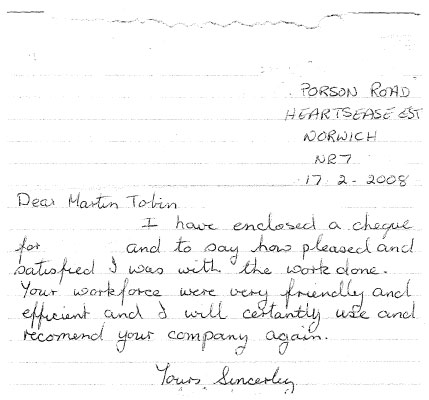 PORSON ROAD
HEARTSEASE EST
NORWICH
NR7
17 2 - 2008
Dear Martin Tobin
I have enclosed a cheque
for and to say how pleased and
satisfied I was with the work done.
Your workforce were very friendly and
efficient and I will certantly use and
recomend your company again.
Yours Sincerley